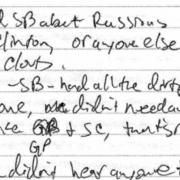 SB about Russians
Clinton, or anyone else
clouts.
- SB - had all the dirty
one, didn't need a
& SC,
GP
didn't hear anyone